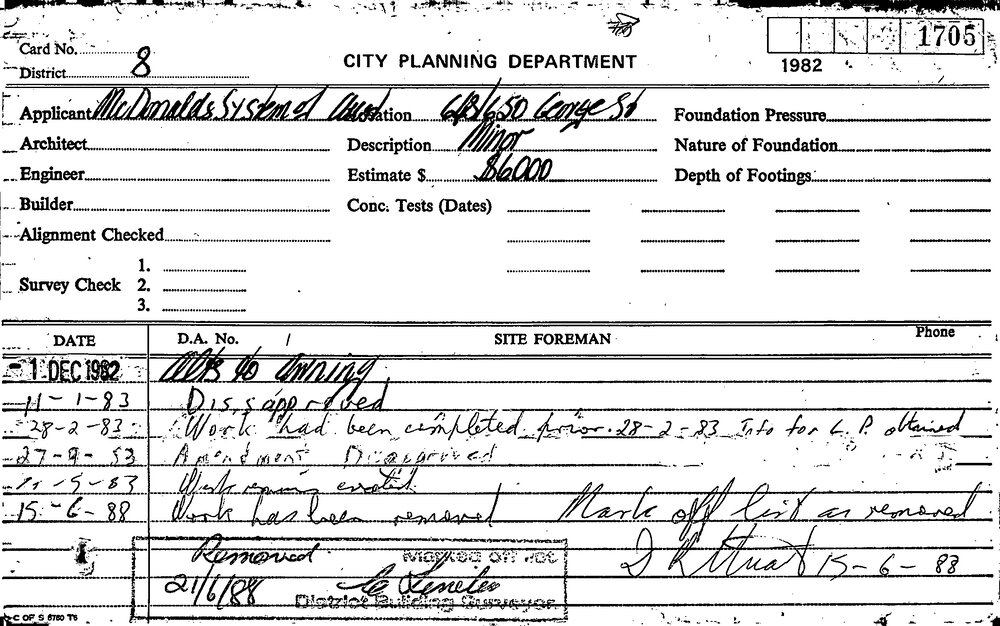 1705
Card No.
1982
District 8
CITY PLANNING DEPARTMENT
Applicant McDonalds System of Aust Location 648/650 George St Foundation Pressure
Architect Description Minor Nature of Foundation
Engineer Estimate $ $6000 Depth of Footings
Builder Conc. Tests (Dates)
Alignment Checked
1.
Survey Check 2.
3.
DATE D.A. No. / SITE FOREMAN Phone
- 1 DEC 1982 Alts to Awning
11 - 1 - 83 Dissapproved
28 - 2 - 83 Work had been completed prior 28 - 2 - 83 Info for L.P. obtained
Amendment Disapproved
Work remains erected
15 - 6 - 88 Work has been removed Mark off list as removed
Removed Marked off Job
15 - 6 - 88
21/6/88
District Building Surveyor
C OF S 5750 T6